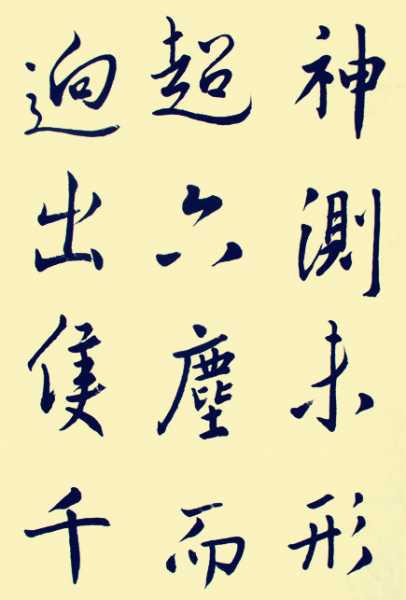 神測未形
超六塵而
逈出隻千